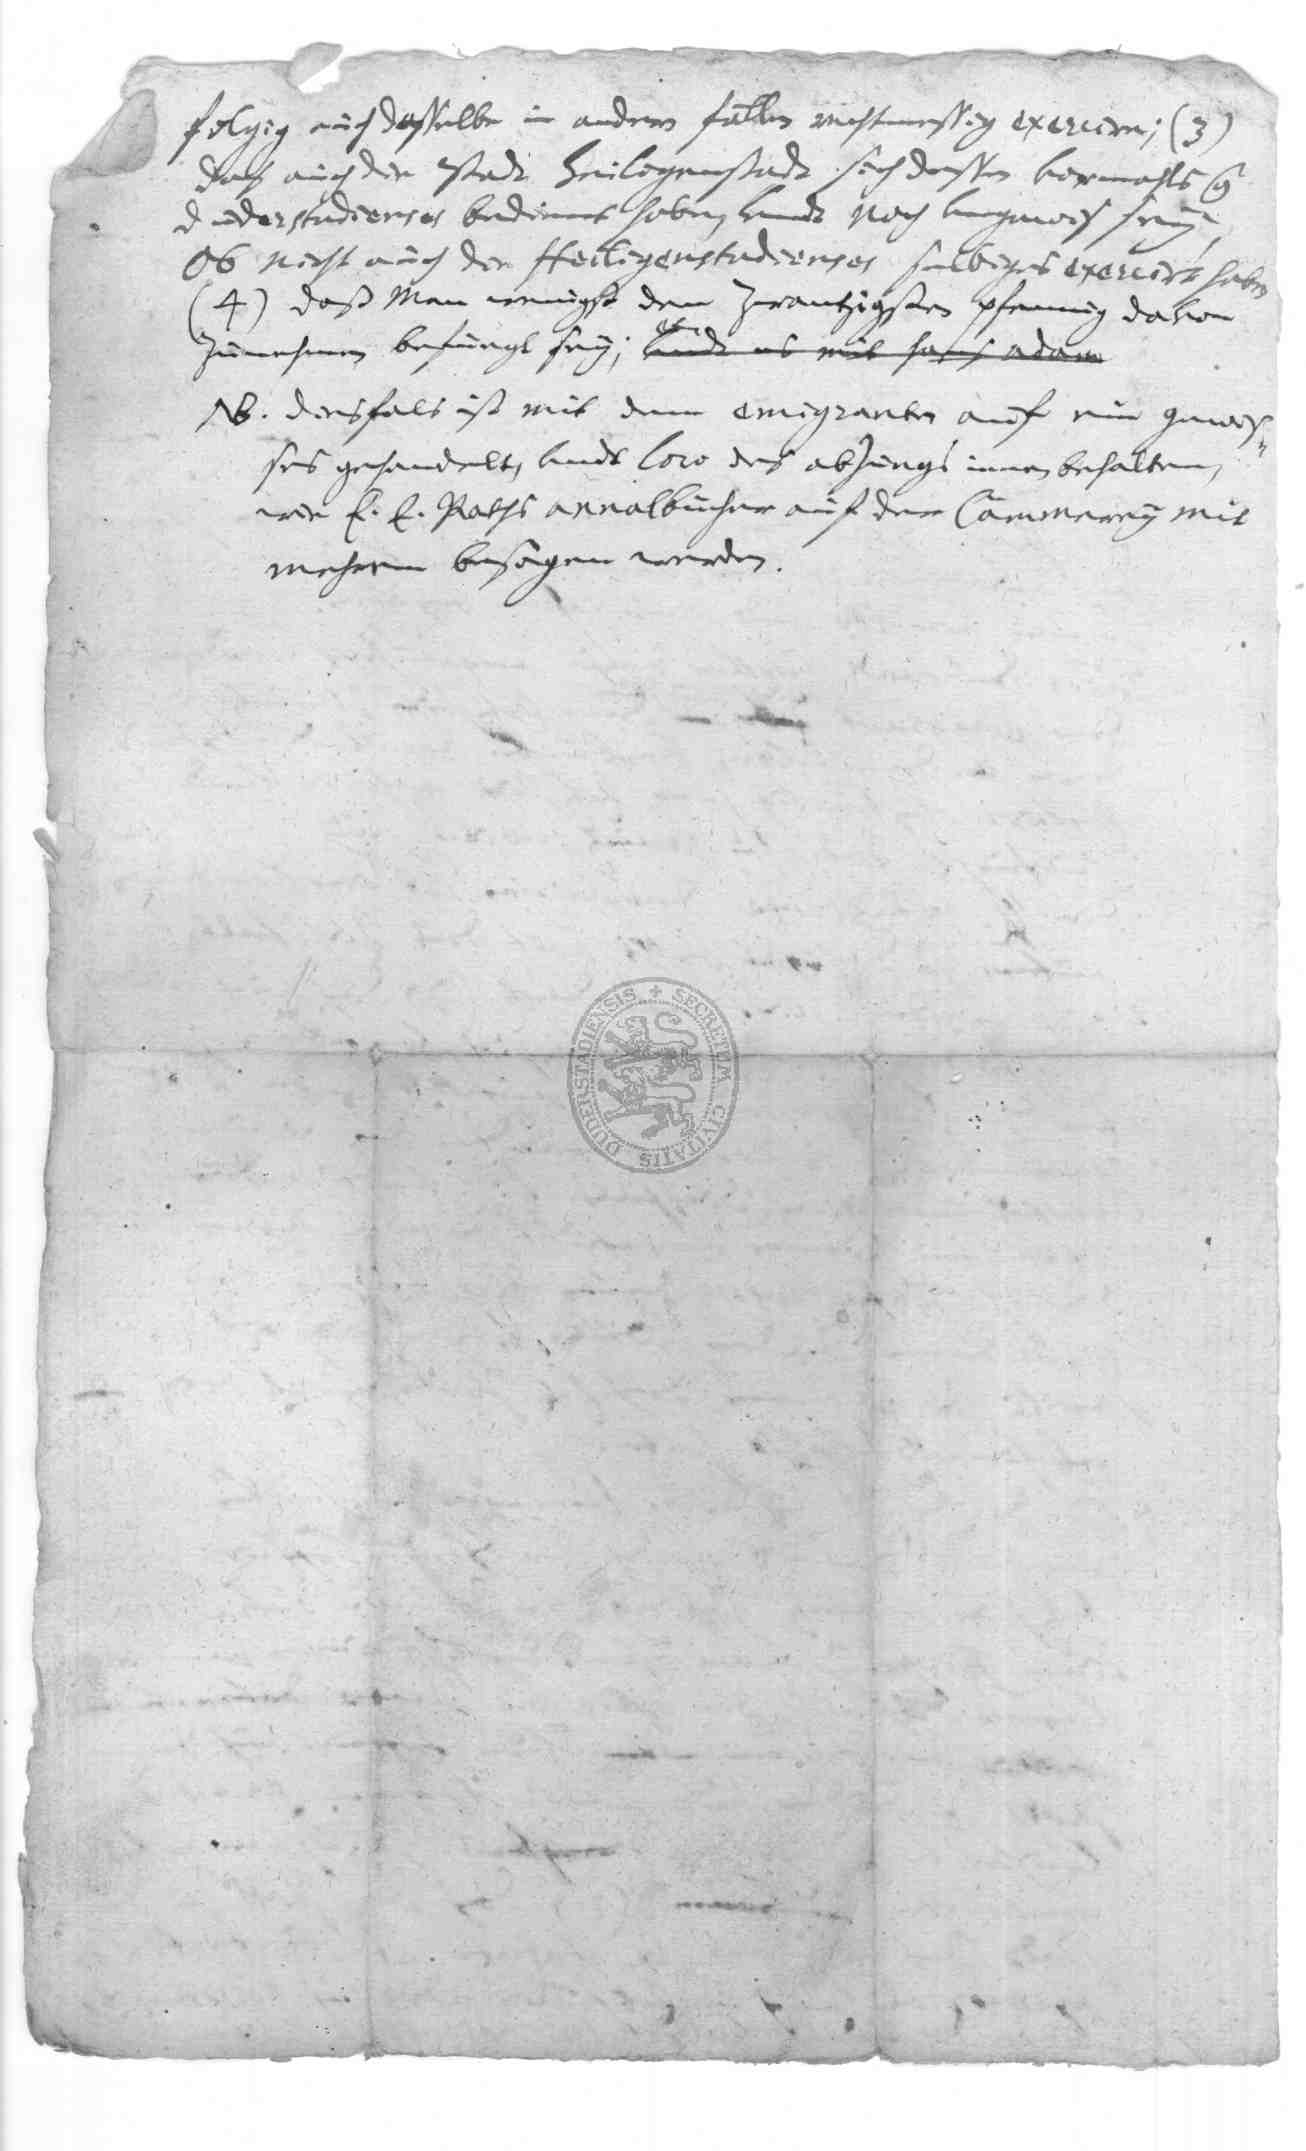 folgig auch dasselbe in andern fällen rechtmessig exerciren; (3)
daß auch der Stadt Heiligenstadt sich dessen vormahls
duderstadienses bedienet haben, undt noch ungewiß seÿ,
Ob nicht auch die Heiligenstadienses selbiges exercirt haben
(4) daß Man wenigst den Zwantzigsten pfennig davon
Zunehmen befuegt seÿ; undt es mit hans adam
NB. diesfals ist mit dem emigranten auf ein gewis-
ses gehandelt, undt loco des abzuegs innen behalten,
wie E. E. Raths annalbücher auf der Cämmereÿ mit
mehrem besagen werden.
SECRETUM CIVITATIS DUDERSTADIENSIS